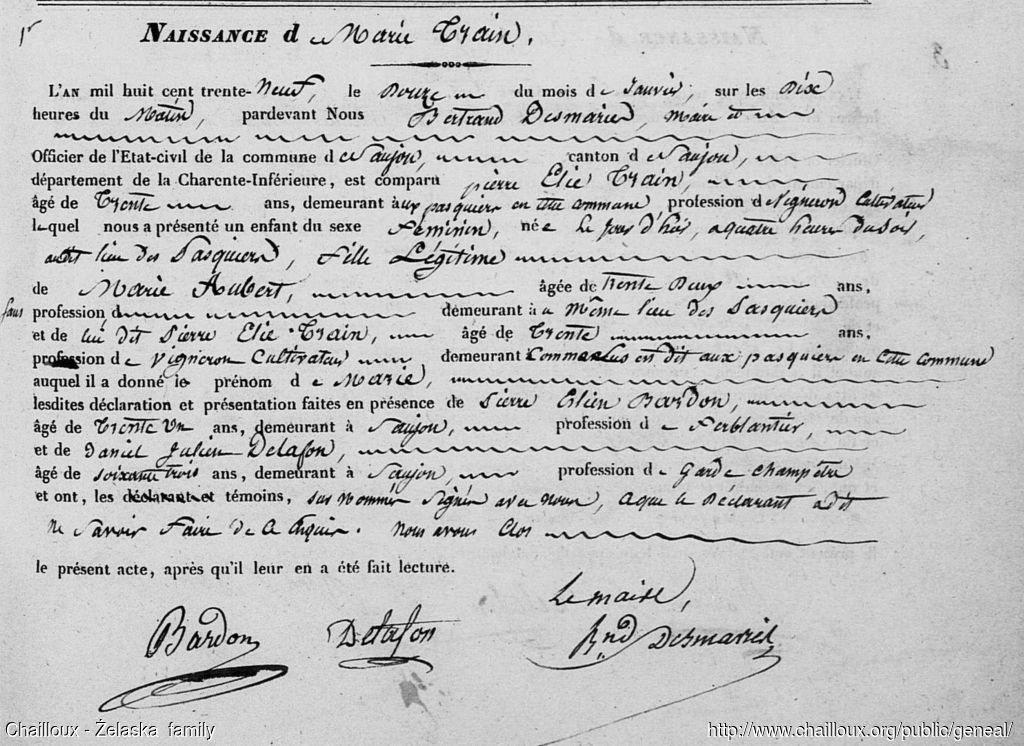 1r
NAISSANCE d e Marie Train.
L'AN mil huit cent trente-Neuf, le Douze du mois de Janvier, sur les Dix
heures du Matin, pardevant Nous Bertrand Desmarier, Maire et
Officier de l'Etat-civil de la commune de Saujon, canton de Saujon,
département de la Charente-Inférieure, est comparu pierre Elie Train,
âgé de Trente ans, demeurant aux pasquiers en cette commune profession de Vigneron Cultivateur
lequel nous a présenté un enfant du sexe Féminin, née
lieu des Pasquiers, Fille Légitime
de Marie Aubert, âgée de trente Deux ans,
sans profession demeurant au Même lieu des Pasquiers
et de dit Pierre Elie Train, âgé de Trente ans,
profession de Vigneron Cultivateur demeurant Comme dit aux pasquiers en cette commune
auquel il a donné le prénom de Marie,
lesdites déclaration et présentation faites en présence de Pierre Bardon,
âgé de Trente Un ans, demeurant à Saujon, profession de Ferblantier,
et de Daniel Julien Delafon,
âgé de soixante trois ans, demeurant à Saujon, profession de Garde champêtre
et ont, les déclarant et témoins, sus nommés Signés avec nous, a que le Déclarant a dit
ne Savoir Faire de Ce Enquis. Nous avons Clos
le présent acte, après qu'il leur en a été fait lecture.
Le maire,
Bardon Delafon Bnd Desmarier
Chailloux - Želaska family http://www.chailloux.org/public/geneal/